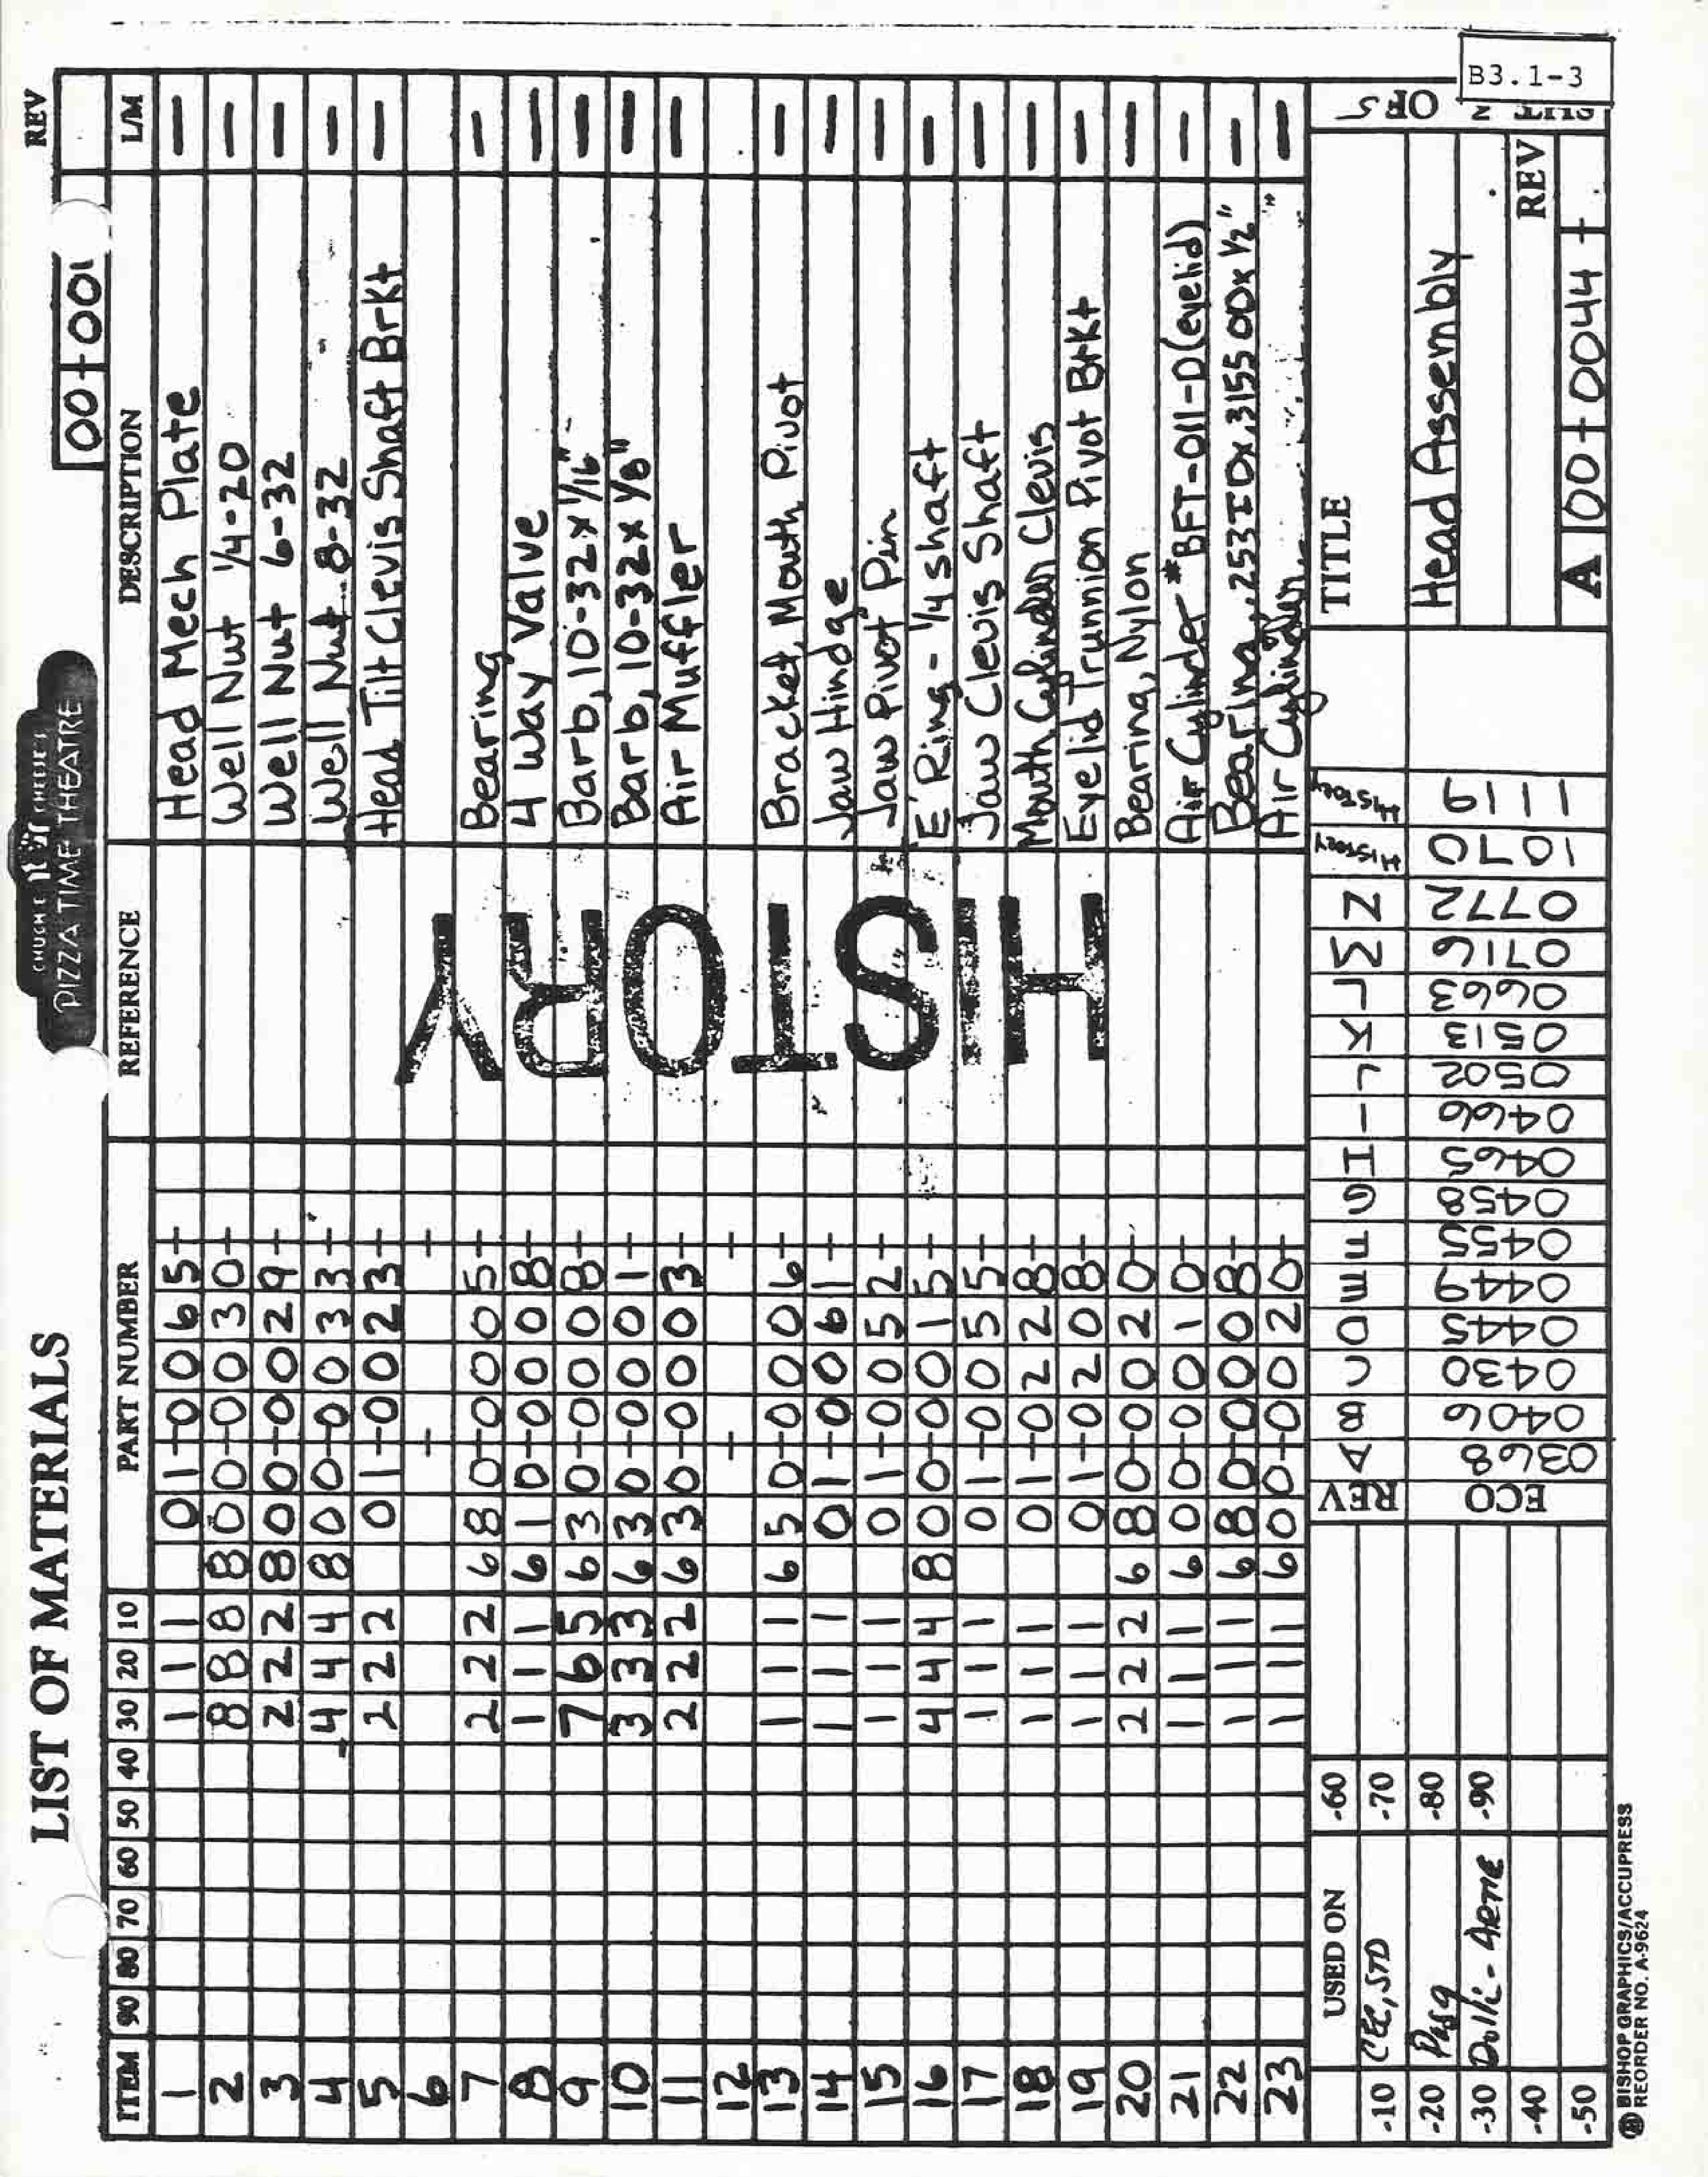 LIST OF MATERIALS
CHUCK E. CHEESE'S
PIZZA TIME THEATRE
REV
100+001
ITEM 90 80 70 60 50 40 30 20 10 PART NUMBER REFERENCE DESCRIPTION L/M
1 1 1 1 01-0065+ Head Mech Plate —
2 8 8 8 800-0030+ Well Nut 1/4-20 —
3 2 2 2 800-0029+ Well Nut 6-32 —
4 4 4 4 800-0033+ Well Nut 8-32 —
5 2 2 2 01-0023+ Head Tilt Clevis Shaft Brkt —
6 - +
7 2 2 2 680-0005+ Bearing —
8 1 1 1 610-0008+ 4 Way Valve —
9 7 6 5 630-0008+ Barb, 10-32 x 1/16" —
10 3 3 3 630-0001+ Barb, 10-32 x 1/8" —
11 2 2 2 630-0003+ Air Muffler —
12 - +
13 1 1 1 650-0006+ Bracket, Mouth Pivot —
14 1 1 1 01-0061+ Jaw Hindge —
15 1 1 1 01-0052+ Jaw Pivot Pin —
16 4 4 4 800-0015+ E' Ring - 1/4 shaft —
17 1 1 1 01-0055+ Jaw Clevis Shaft —
18 1 1 1 01-0228+ Mouth Cylinder Clevis —
19 1 1 1 01-0208+ Eyelid Trunnion Pivot Brkt —
20 2 2 2 680-0020+ Bearing, Nylon —
21 1 1 1 600-0010+ Air Cylinder #BFT-011-D(eyelid) —
22 1 1 1 680-0008+ Bearing, .253IDx.3155ODx1/2" —
23 1 1 1 600-0020+ Air Cylinder —
HISTORY
USED ON
-10 CEC, STD
-20 Pasq
-30 Dolli-Arme
-40
-50
-60
-70
-80
-90
REV A B C D E F G H I J K L M N HISTORY HISTORY
ECO 0368 0406 0430 0445 0449 0455 0458 0465 0466 0502 0513 0663 0716 0772 1070 1119
TITLE
Head Assembly
REV
A 100+0044+
SHT 2 OF 5
B3.1-3
BISHOP GRAPHICS/ACCUPRESS
REORDER NO. A-9624